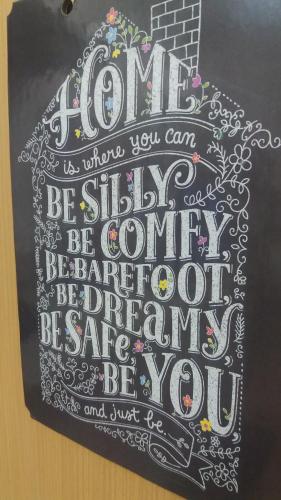 HOME
is where you can
BE SiLLY,
BE COMFY,
BE BAREFOOT,
BE DREAMY,
BE SAFE,
BE YOU,
and just be.